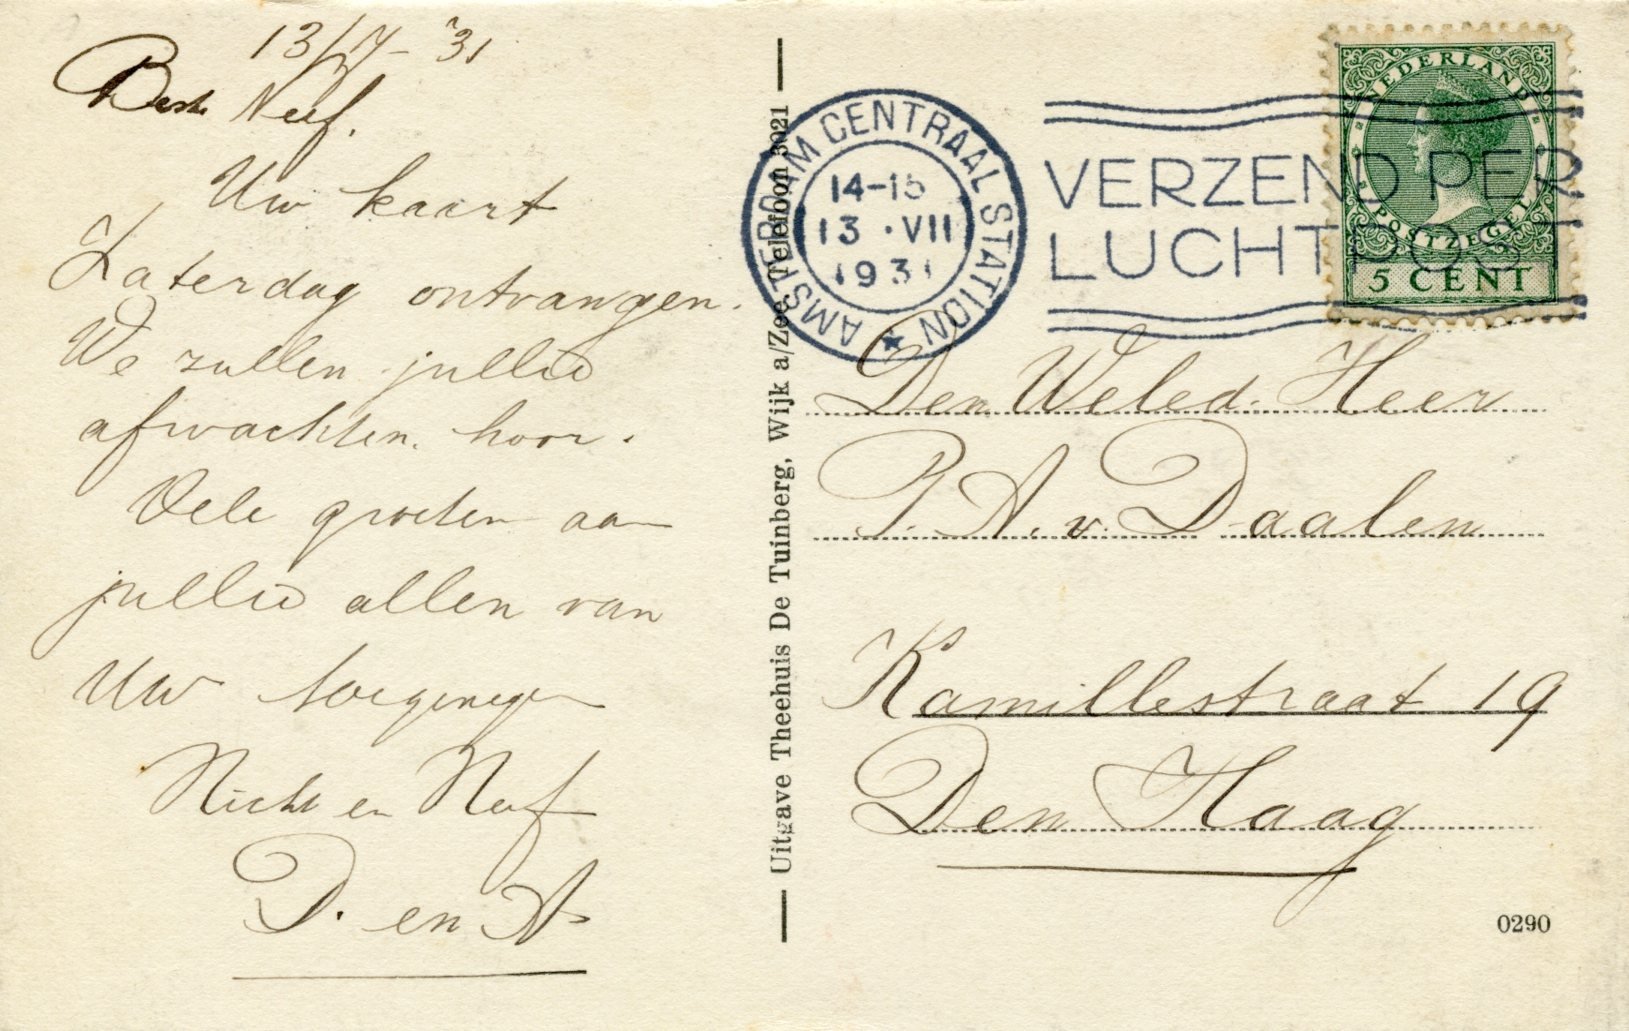 13/7-'31
Beste Neef.
Uw kaart
Zaterdag ontvangen.
We zullen jullie
afwachten hoor.
Vele groeten aan
jullie allen van
Uw toegenegen
Nicht en Neef
D. en A
Uitgave Theehuis De Tuinberg, Wijk a/Zee, Telefoon 3021
AMSTERDAM CENTRAAL STATION
14-15
13 · VII
1931
VERZEND PER
LUCHTPOST
NEDERLAND
POSTZEGEL
5 CENT
Den Weled. Heer
P. A. v. Daalen
Kamillestraat 19
Den Haag
0290